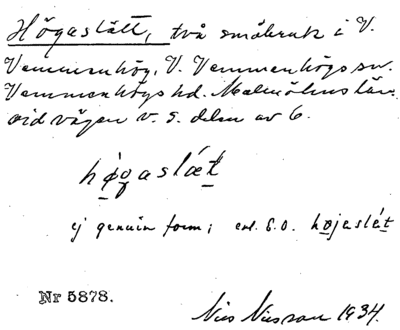 Högaslätt, två småbruk i V.
Vemmenhög, V. Vemmenhögs sn.
Vemmenhögs hd. Malmöhus län
vid vägen v. s. delen av 6.
høgaslæt
ej genuin form; enl. S.O. højaslæt
Nr 5878.
Nils Nilsson 1934.